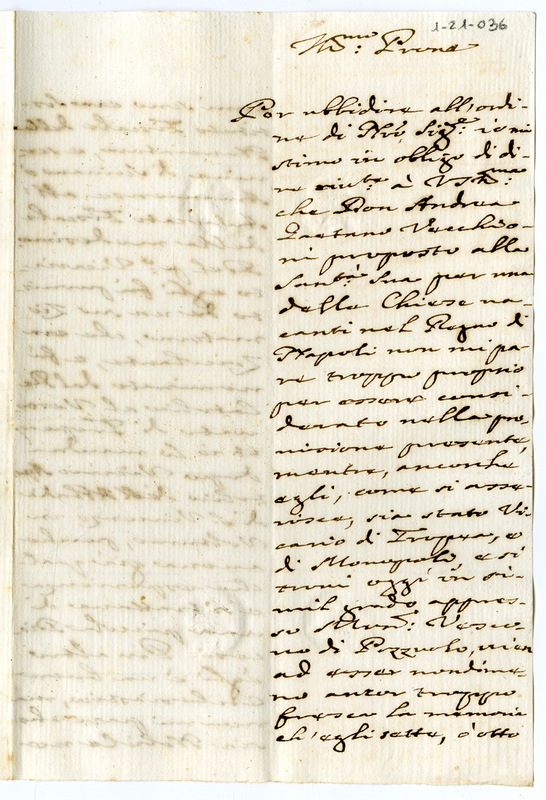 1-21-036
Ill.mo: Prone
Per ubbidire all'ordi-
ne di Nro Sig.re: io mi
stimo in obligo di di-
re à VS Ill.ma:
che Don Andrea
Gaetano Vecchio-
ni proposto alla
Sant.à: Sua per una
delle Chiese va-
canti nel Regno di
Napoli non mi pa-
re troppo proprio
per essere consi-
derato nella pro-
visione presente,
mentre, ancorche
egli, come si asse-
risce, sia stato Vi-
cario di Tropea, e
di Monopoli, e si
trovi oggi in si-
mil grado appres-
so Mon.r: Vesco-
vo di Pozzuolo, vien
ad esser nondime-
no ancor troppo
fresca la memoria
ch'egli sette, ò otto